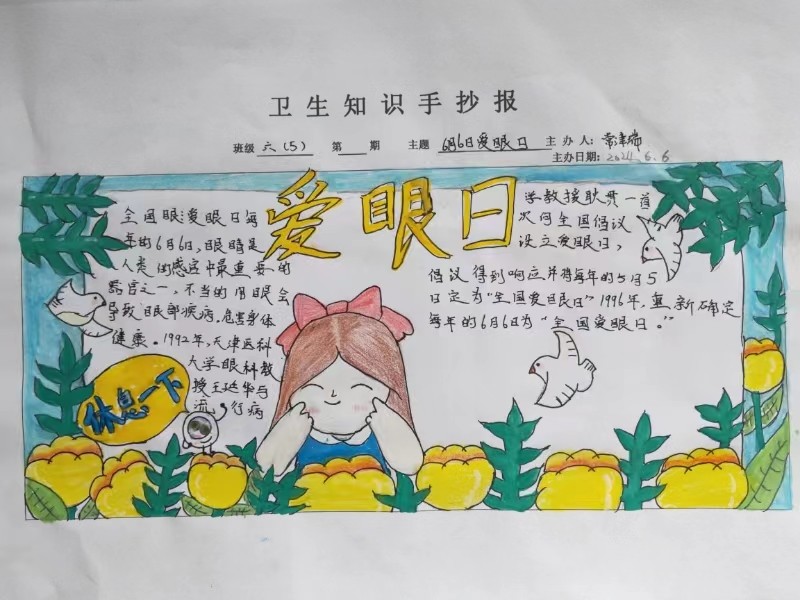 卫生知识手抄报
班级 六(5) 第 期 主题 6月6日爱眼日 主办人:
主办日期: 2024.6.6
爱眼日
全国眼爱眼日每
年的6月6日,眼睛是
人类的感官中最重要的
器官之一,不当的用眼会
导致眼部疾病,危害身体
健康。1992年,天津医科
大学眼科教
授王延华与
流行病
学教授耿贯一首
次向全国倡议
设立爱眼日,
倡议得到响应并将每年的5月5
日定为“全国爱眼日”1996年,重新确定
每年的6月6日为“全国爱眼日。”
休息一下